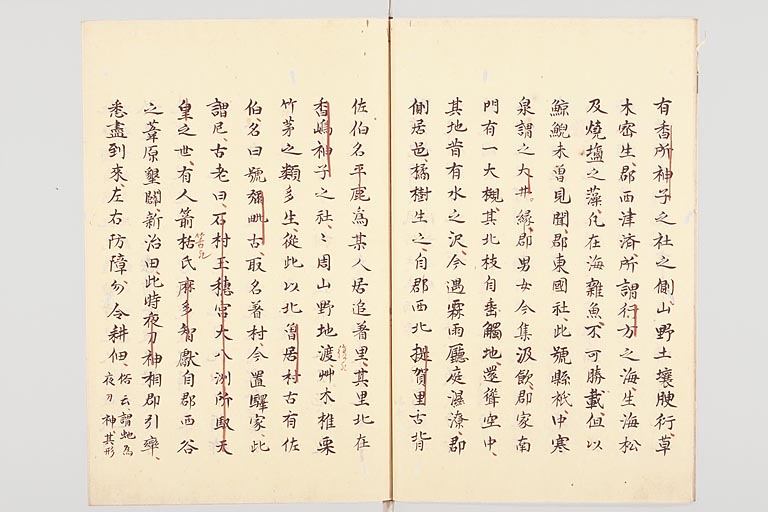 有香所神子之社之側山野土壤腴衍草
木密生郡西津済所謂行方之海生海松
及燒塩之藻凡在海雜魚不可勝載但以
鯨鯢未曽見聞郡東國社此號縣祇中寒
泉謂之大井緑郡男女今集汲飲郡家南
門有一大槻其北枝自垂觸地還聳空中
其地昔有水之沢今遇霖雨廳庭濕潦郡
側居邑橘樹生之自郡西北提賀里古背
佐伯名手鹿為某人居追着里其里北在
香嶋神子之社〻周山野地渡艸木椎栗
竹茅之類多生従此以北曽居村古有佐
伯名曰號弥毗古取名着村今置驛家此
謂尼古老曰石村玉穗宮大八洲所馭天
皇之世有人箭栝氏麻多智獻自郡西谷
之葦原墾闢新治田此時夜刀神相群引率
悉盡到来左右防障勿令耕佃俗云謂虵為
夜刀神其形